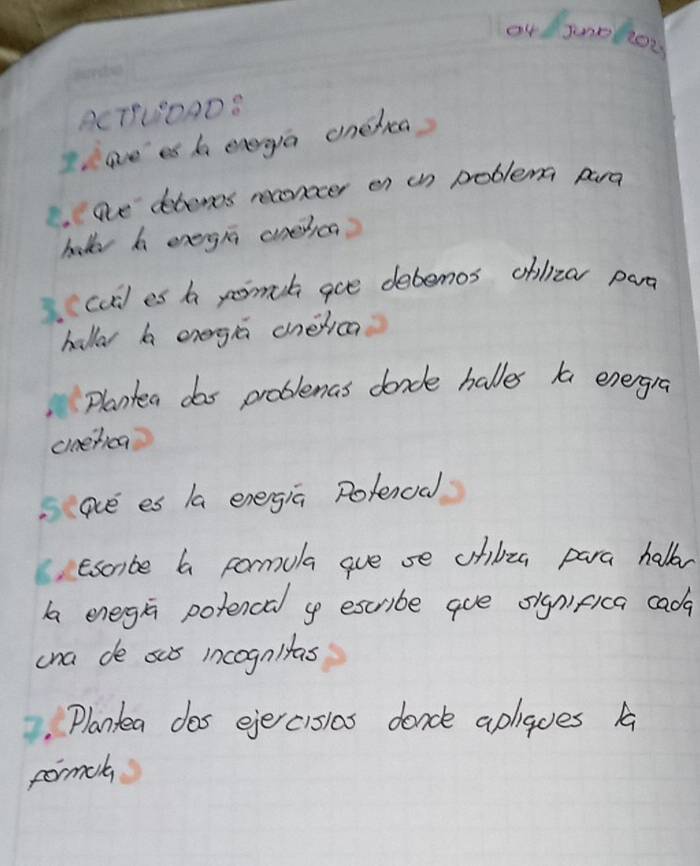 04/Junio/202
ACTIVIDAD:
1. ¿Qué es la energía cinética?
2. ¿Que debemos reconocer en un problema para
hallar la energía cinética?
3. ¿Cuál es la fórmula que debemos utilizar para
hallar la energía cinética?
¿Plantea dos problemas donde halles la energia
cinética?
5 ¿Qué es la energía Potencial?
6. ¿Escribe la formula que se utiliza para hallar
la energía potencial y escribe que significa cada
una de sus incognitas?
7. ¿Plantea dos ejercisios donde apliques la
fórmula?